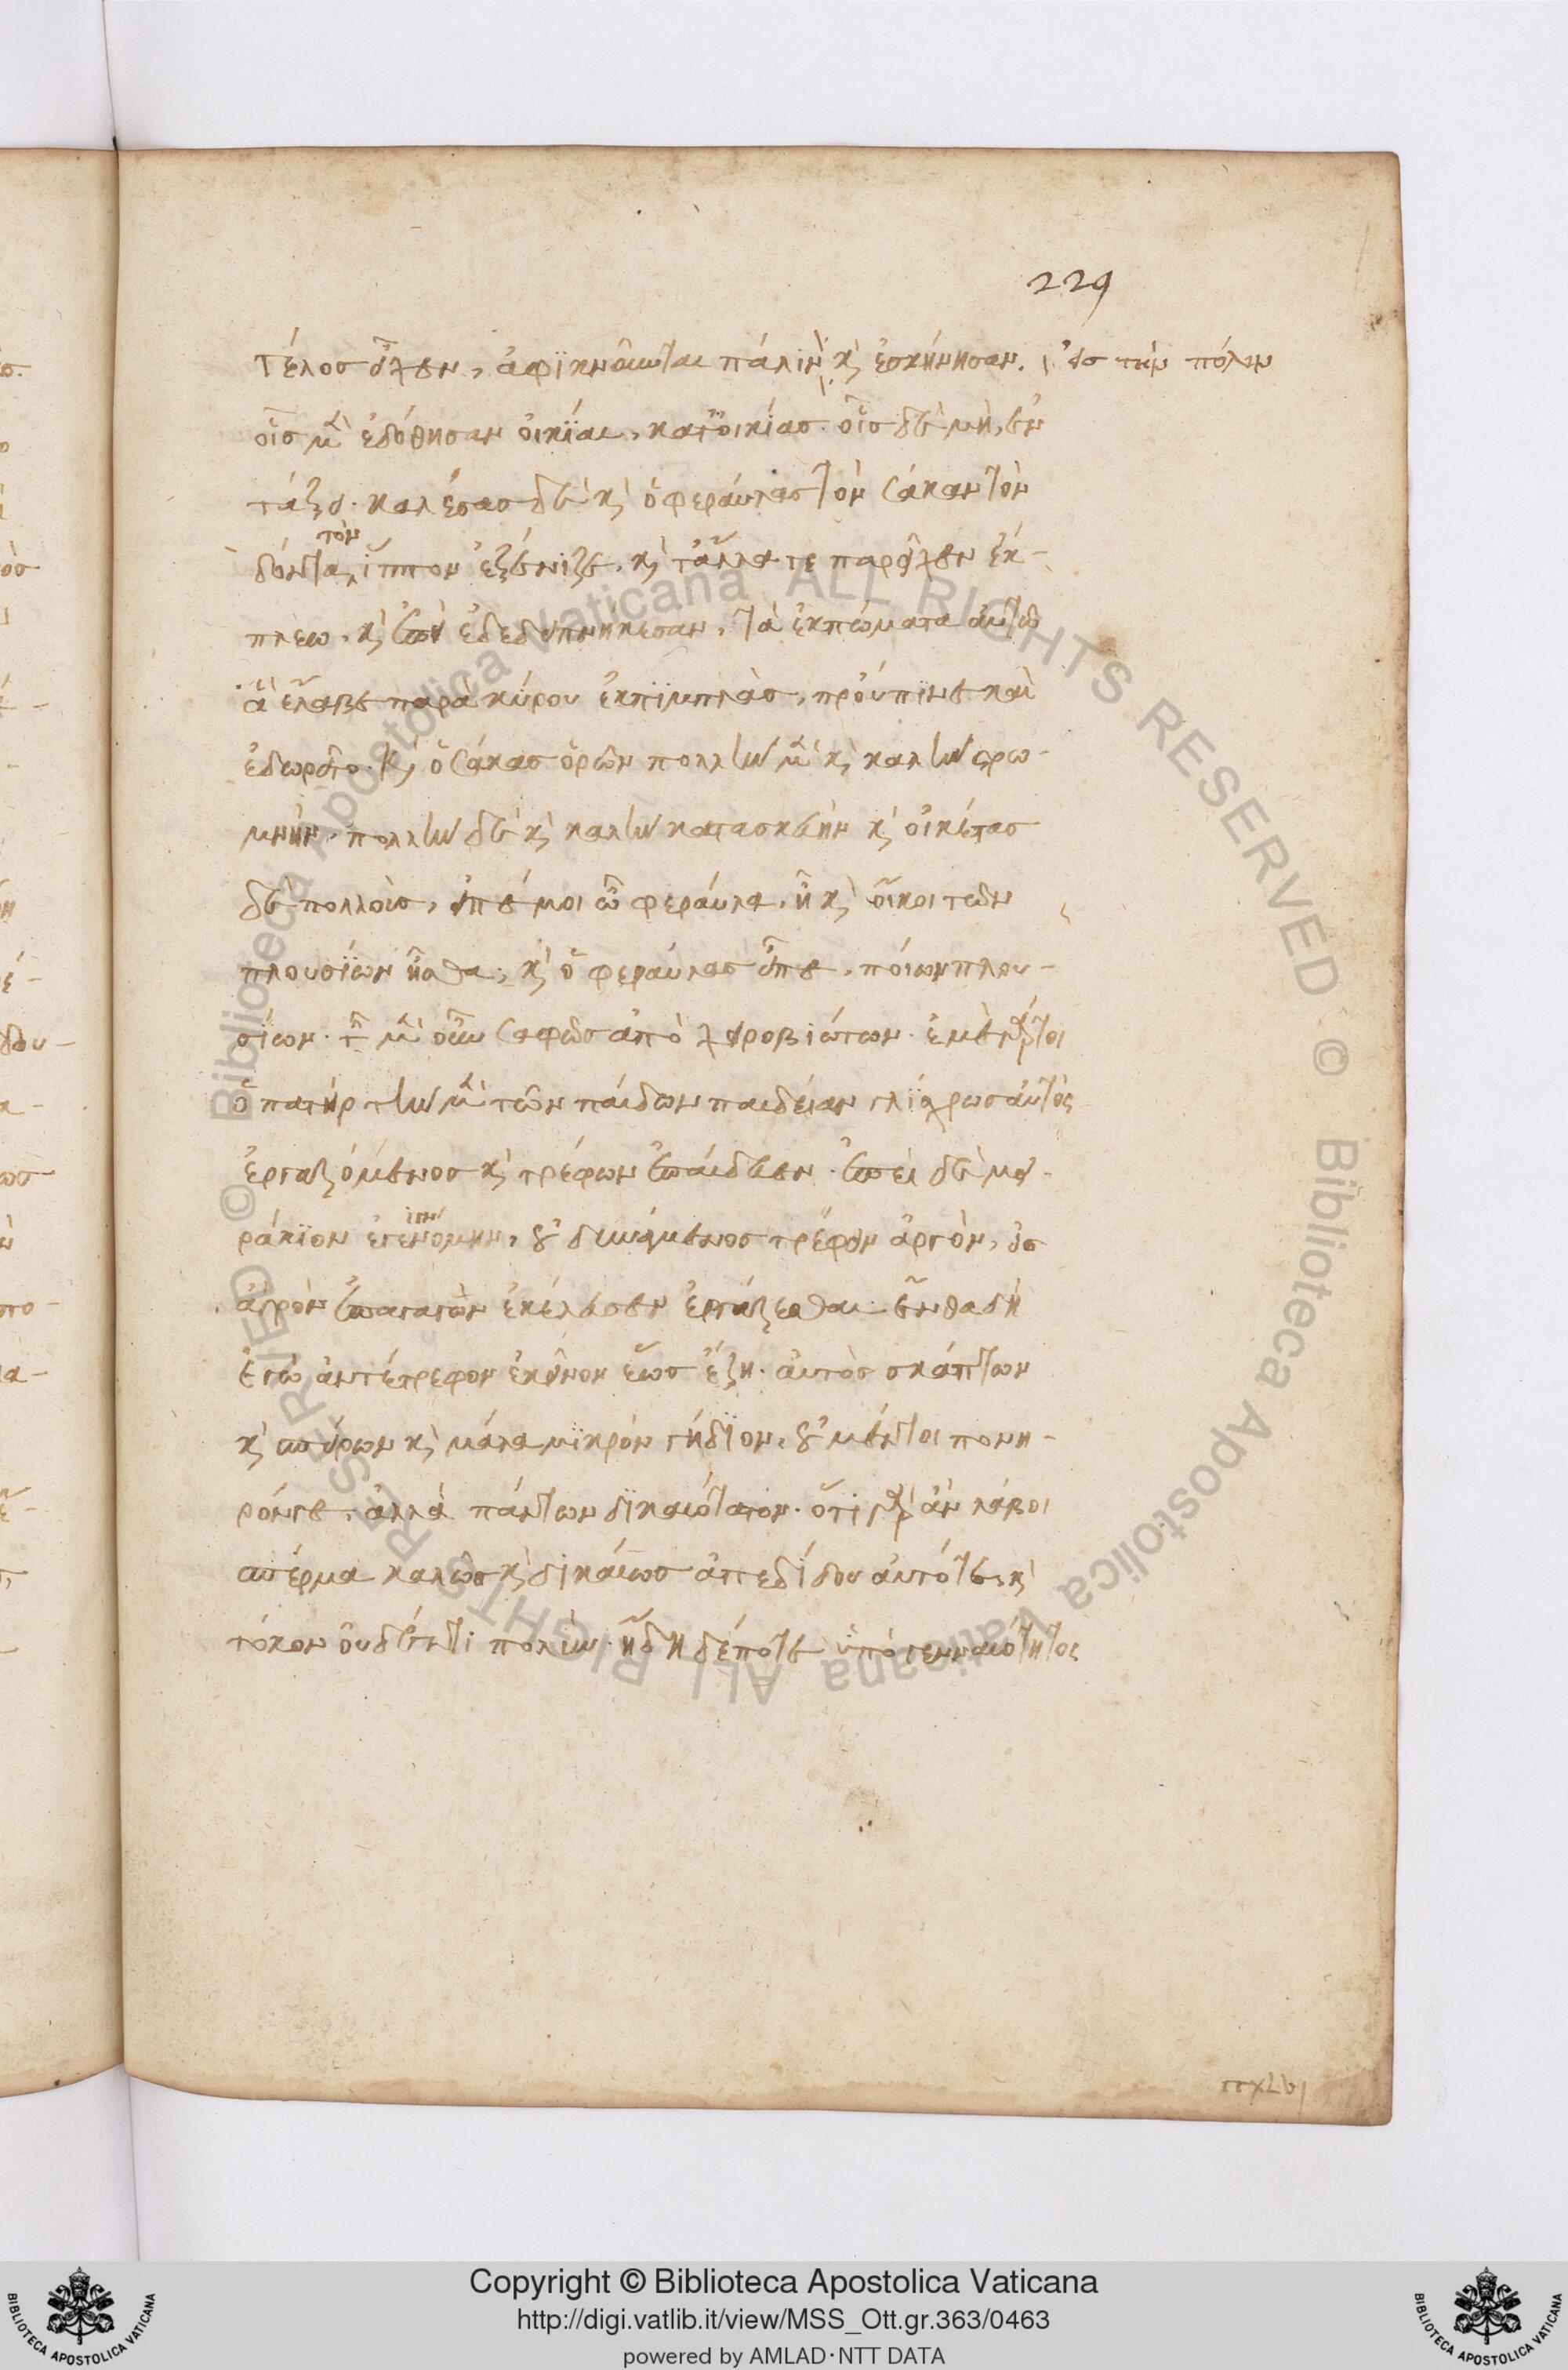 229
τέλος εἶχεν, ἀφϊκνοῦνται πάλιν καὶ ἐσκήνησαν. εἰς τὴν πόλιν
οἷς μὲν ἐδόθησαν οἰκίαι, κατοικίας· οἷς δὲ μὴ, ἐν
τάξει. καλέσας δὲ καὶ ὁ φεραύλας τὸν σάκαν τὸν
τὸν
δόντα ἵππον ἐξένιζε, καὶ τἄλλα τε παρεῖχεν ἔκ-
πλεω, καὶ ἐπεὶ ἐδεδειπνήκεσαν, τὰ ἐκπώματα αὐτῶ
ἃ ἔλαβε παρὰ κύρου ἐκπϊμπλὰς, προύπινε καὶ
ἐδωρεῖτο. καὶ ὁ σάκας ὁρῶν πολλὴν μὲν καὶ καλὴν στρω-
μνήν. πολλὴν δὲ καὶ καλὴν κατασκευὴν καὶ οἰκέτας
δὲ πολλοὺς, εἰπέ μοι ὦ φεραύλα, ἦ καὶ οἴκοι τῶν
πλουσίων ἦσθα; καὶ ὁ φεραύλας εἶπε, ποίων πλου-
σίων. τῶν μὲν οὖν σαφῶς ἀπὸ χειροβιώτων. ἐμὲ γάρ τοι
ὁ πατὴρ τὴν μὲν τῶν παίδων παιδείαν γλίσχρως αὐτὸς
ἐργαζόμενος καὶ τρέφων ἐπαίδευεν. ἐπεὶ δὲ μει-
ράκϊον ἐγενόμην, οὐ δυνάμενος τρέφειν ἀργὸν, εἰς
ἀγρὸν ἐπαγαγὼν ἐκέλευσεν ἐργάζεσθαι. ἔνθα δὴ
ἐγὼ ἀντέτρεφον ἐκεῖνον ἕως ἔζη. αὐτὸς σκάπτων
καὶ σπείρων καὶ μάλα μϊκρὸν γήδϊον, οὐ μέντοι πονη-
ρόν γε, ἀλλὰ πάντων δϊκαιότατον. ὅτι γὰρ ἂν λάβοι
σπέρμα καλῶς καὶ δικαίως ἀπεδίδου αὐτό τε, καὶ
τόκον οὐδέν τι πολύν. ἤδη δέ ποτε ὑπὸ γενναιότητος
Copyright © Biblioteca Apostolica Vaticana
http://digi.vatlib.it/view/MSS_Ott.gr.363/0463
powered by AMLAD·NTT DATA